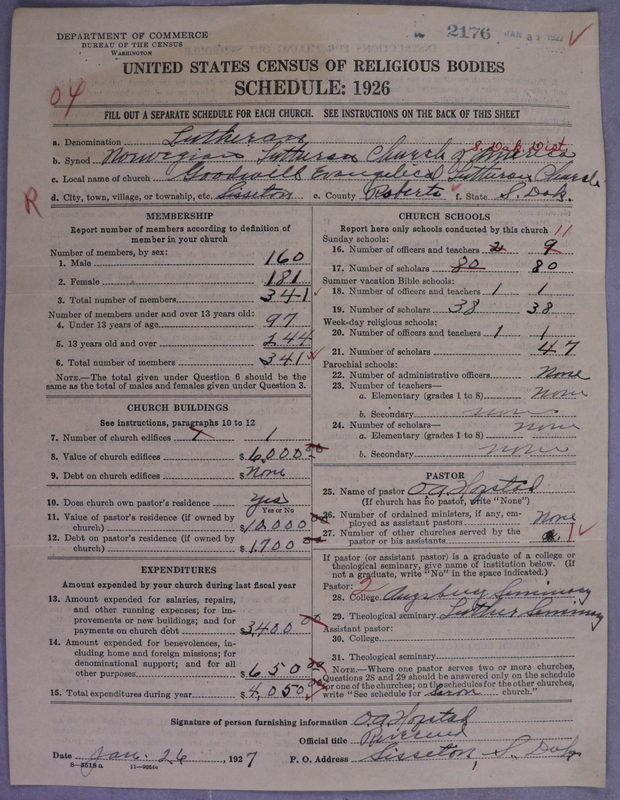 DEPARTMENT OF COMMERCE
BUREAU OF THE CENSUS
WASHINGTON
2176 JAN 31 1927
UNITED STATES CENSUS OF RELIGIOUS BODIES
SCHEDULE: 1926
04
FILL OUT A SEPARATE SCHEDULE FOR EACH CHURCH. SEE INSTRUCTIONS ON THE BACK OF THIS SHEET
a. Denomination Lutheran
S. Dak. Dist.
b. Synod Norwegian Lutheran Church of America
c. Local name of church Goodwill Evangelical Lutheran Church
R
d. City, town, village, or township, etc. Sisseton e. County Roberts f. State S. Dak.
MEMBERSHIP
Report number of members according to definition of
member in your church
Number of members, by sex:
1. Male 160
2. Female 181
3. Total number of members 341
Number of members under and over 13 years old:
4. Under 13 years of age 97
5. 13 years old and over 244
6. Total number of members 341
NOTE.—The total given under Question 6 should be the
same as the total of males and females given under Question 3.
CHURCH BUILDINGS
See instructions, paragraphs 10 to 12
7. Number of church edifices 1
8. Value of church edifices $ 6,000 00
9. Debt on church edifices $ None
10. Does church own pastor's residence yes
Yes or No
11. Value of pastor's residence (if owned by
church) $ 10,000 00
12. Debt on pastor's residence (if owned by
church) $ 1,700 00
EXPENDITURES
Amount expended by your church during last fiscal year
13. Amount expended for salaries, repairs,
and other running expenses; for im-
provements or new buildings; and for
payments on church debt $ 3,400 00
14. Amount expended for benevolences, in-
cluding home and foreign missions; for
denominational support; and for all
other purposes $ 650 00
15. Total expenditures during year $ 4,050 00
CHURCH SCHOOLS
Report here only schools conducted by this church 11
Sunday schools:
16. Number of officers and teachers 9
17. Number of scholars 80 80
Summer vacation Bible schools:
18. Number of officers and teachers 1 1
19. Number of scholars 38 38
Week-day religious schools:
20. Number of officers and teachers 1 1
21. Number of scholars 47
Parochial schools:
22. Number of administrative officers None
23. Number of teachers—
a. Elementary (grades 1 to 8) None
b. Secondary none
24. Number of scholars— none
a. Elementary (grades 1 to 8)
b. Secondary none
PASTOR
25. Name of pastor
(If church has no pastor, write "None")
26. Number of ordained ministers, if any, em-
ployed as assistant pastors None
27. Number of other churches served by the
pastor or his assistants 1
If pastor (or assistant pastor) is a graduate of a college or
theological seminary, give name of institution below. (If
not a graduate, write "No" in the space indicated.)
Pastor: 2
28. College Augsburg Seminary
29. Theological seminary Luther Seminary
Assistant pastor:
30. College
31. Theological seminary
NOTE.—Where one pastor serves two or more churches,
Questions 28 and 29 should be answered only on the schedule
for one of the churches; on the schedules for the other churches,
write "See schedule for church."
Signature of person furnishing information
Official title Reverend
Date Jan. 26, 1927 P. O. Address Sisseton S. Dak.
8—3518 a